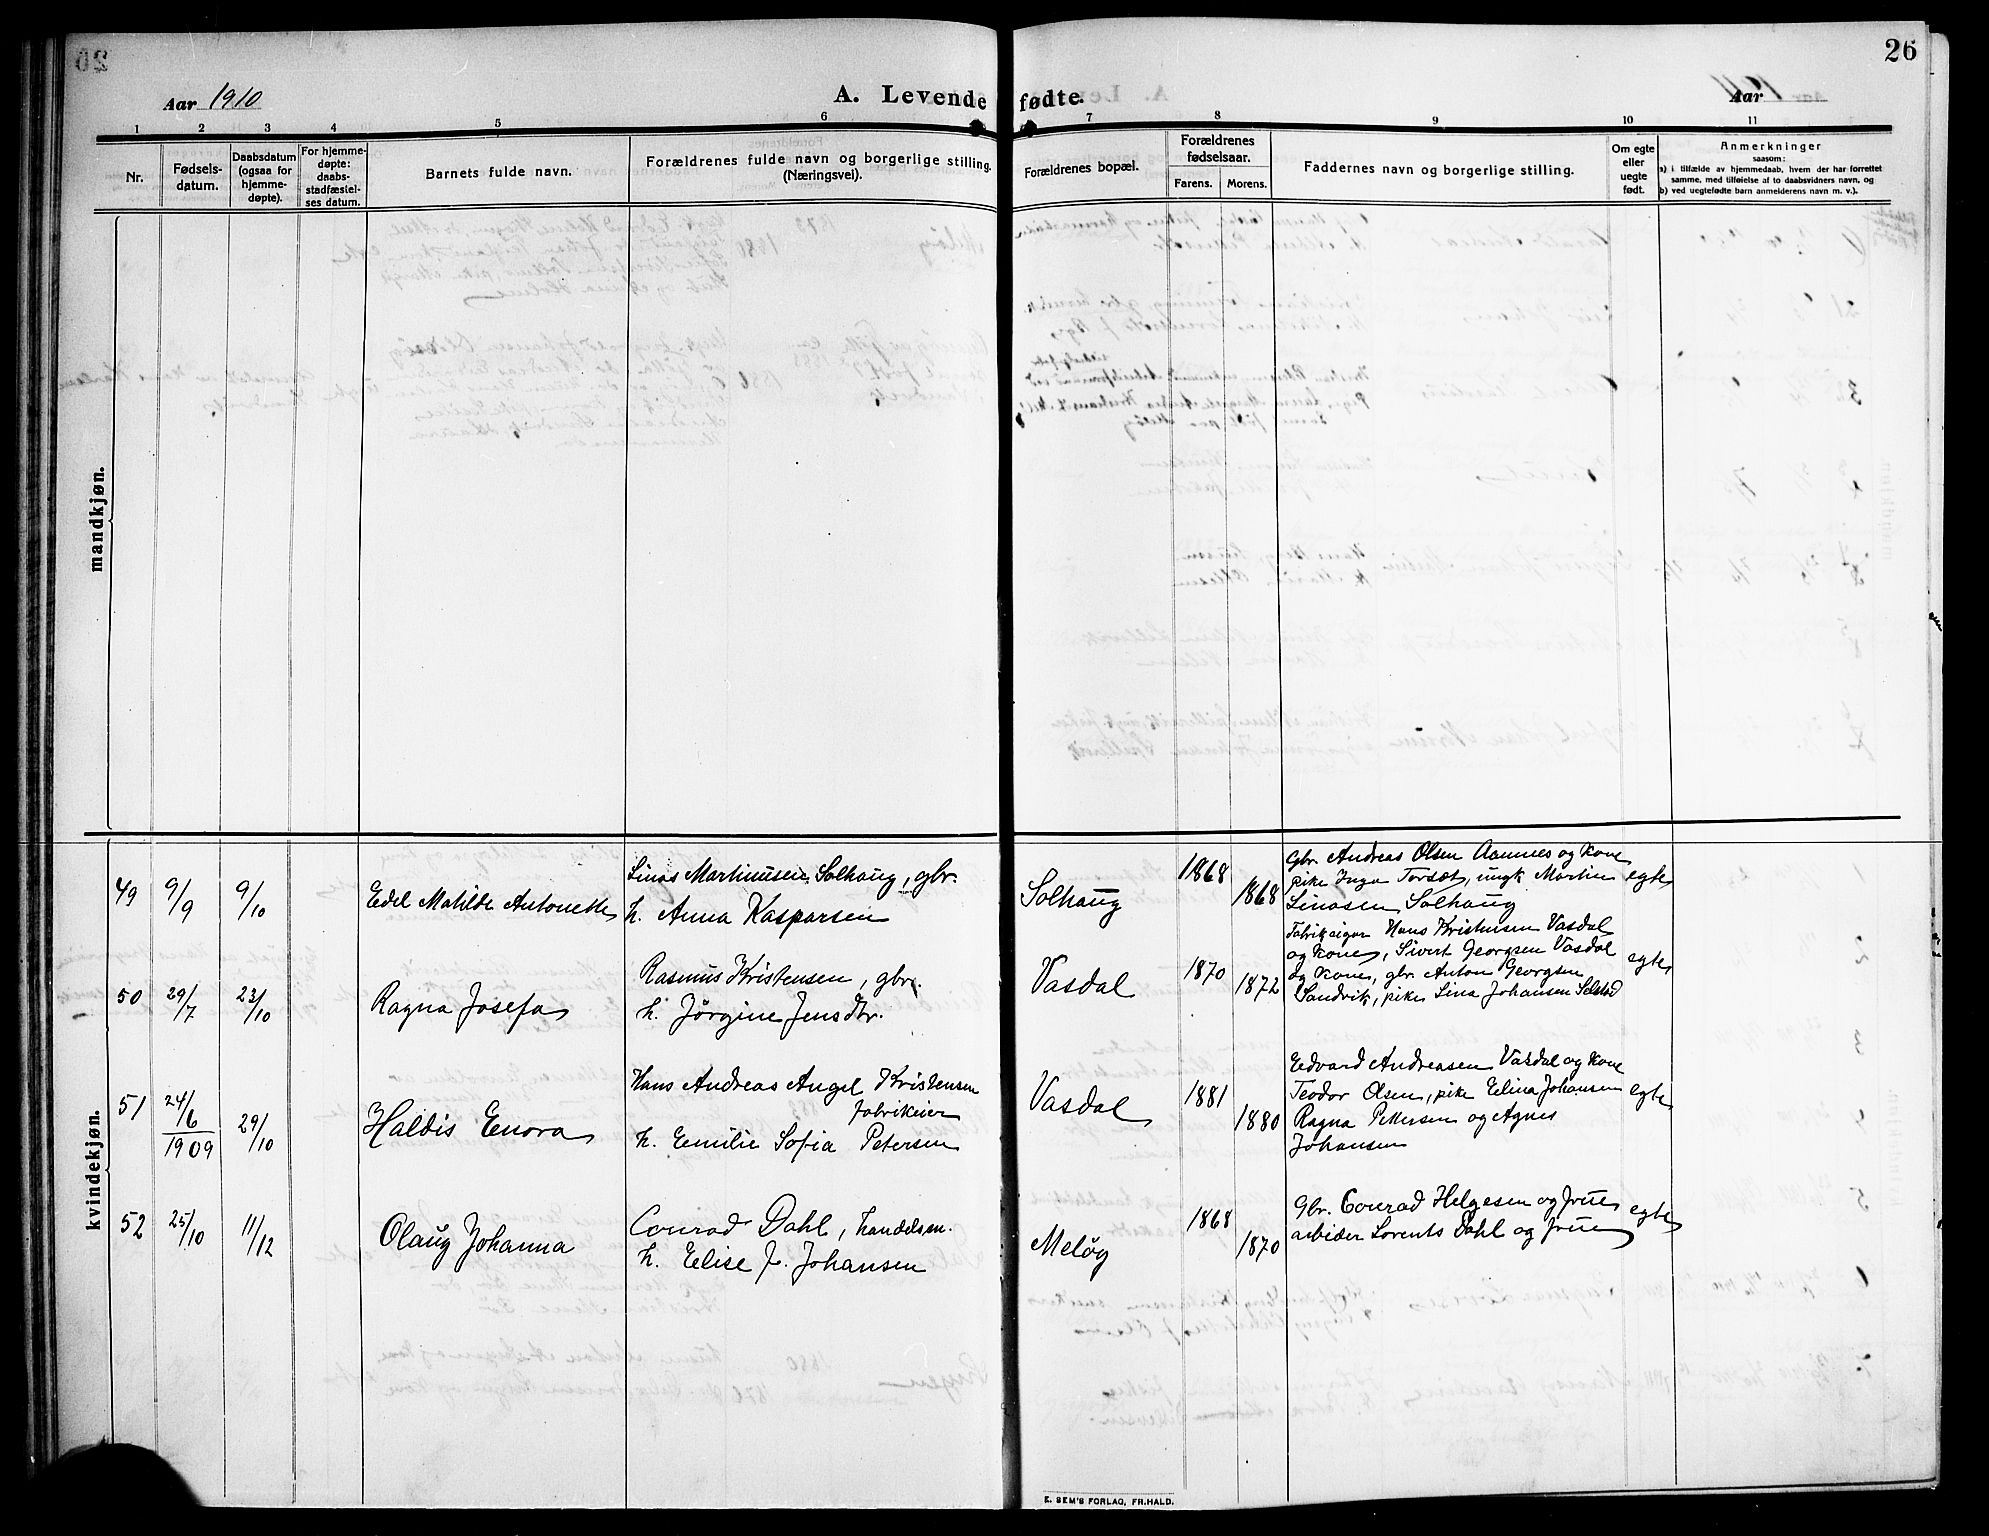 26
Aar 1910
A. Levende fødte.
Aar
1 2 3 4 5 6 7 8 9 10 11
Nr.
Fødsels-
datum.
Daabsdatum
(ogsaa for
hjemme-
døpte).
For hjemme-
døpte:
daabs-
stadfæstel-
ses datum.
Barnets fulde navn.
Forældrenes fulde navn og borgerlige stilling.
(Næringsvei).
Forældrenes bopæl.
Forældrenes
fødselsaar.
Farens. Morens.
Faddernes navn og borgerlige stilling.
Om egte
eller
uegte
født.
Anmerkninger
saasom:
a) i tilfælde av hjemmedaab, hvem der har forrettet
samme, med tilføielse af to daabsvidners navn, og
b) ved uegtefødte barn anmelderens navn m. v.).
mandkjøn.
kvindekjøn.
49 9/9 9/10 Edel Matilde Antonette
Linas Martinusen Solhaug, gbr.
h. Anna Kasparsen
Solhaug
1868
1868
Gbr. Andreas Olsen Aamnes og kone
pike Inga Torsæt, ungk Martin
Linasen Solhaug
egte
50 29/7 23/10 Ragna Josefa
Rasmus Kristensen, gbr.
h. Jørgine Jensdtr.
Vasdal
1870
1872
Fabrikeigar Hans Kristensen Vasdal
og kone, Sivert Georgsen Vasdal
og kone, gbr. Anton Georgsen
Sandvik, pike Lina Johansen Selstad
egte
51 24/6 1909 29/10 Haldis Enora
Hans Andreas Angel Kristensen
fabrikeier
h. Emilie Sofia Petersen
Vasdal
1881
1880
Edvard Andreasen Vasdal og kone
Teodor Olsen, pike Elina Johansen
Ragna Pettersen og Agnes
Johansen
egte
52 25/10 11/12 Olaug Johanna
Conrad Dahl, handelsm.
h. Elise J. Johansen
Meløg
1868
1870
Gbr. Conrad Helgesen og frue
arbeider Lorents Dahl og frue
egte
E. SEM'S FORLAG, FR.HALD.